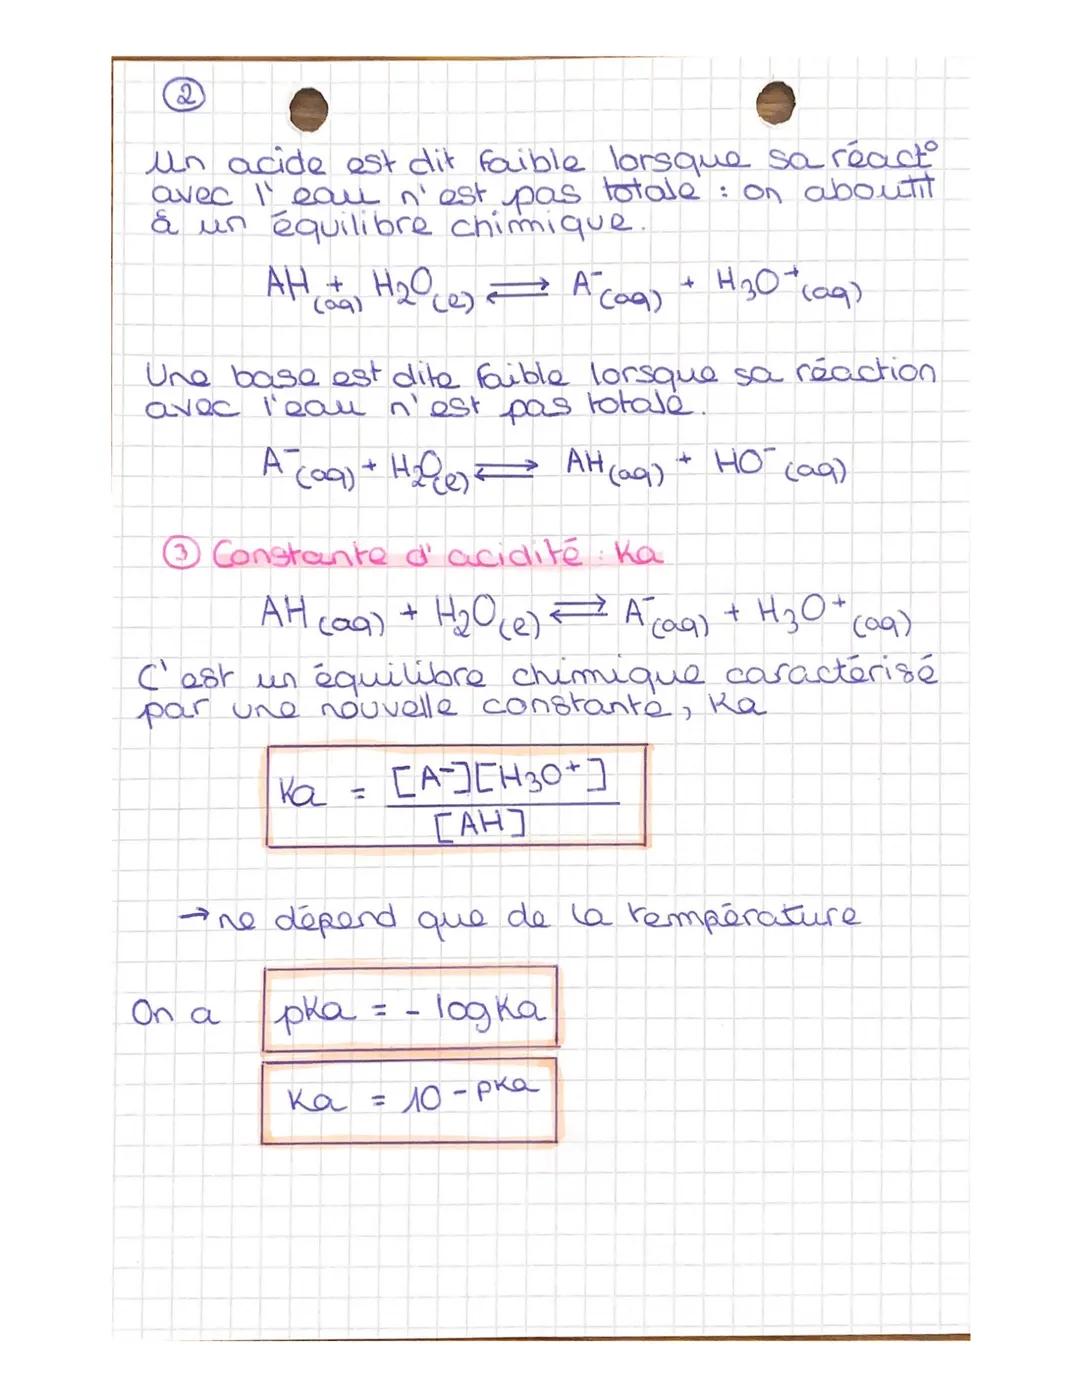 ②
Un acide est dit faible lorsque sa réact°
avec l'eau n'est pas totale : on aboutit
à un équilibre chimique.
AH(aq) + H₂O(l) ⇌ A⁻(aq) + H₃O⁺(aq)
Une base est dite faible lorsque sa réaction
avec l'eau n'est pas totale.
A⁻(aq) + H₂O(l) ⇌ AH(aq) + HO⁻(aq)
③ Constante d'acidité : Ka
AH(aq) + H₂O(l) ⇌ A⁻(aq) + H₃O⁺(aq)
C'est un équilibre chimique caractérisé
par une nouvelle constante, Ka
Ka = [A⁻][H₃O⁺]
[AH]
→ ne dépend que de la température
On a pKa = - log Ka
Ka = 10 - pKa